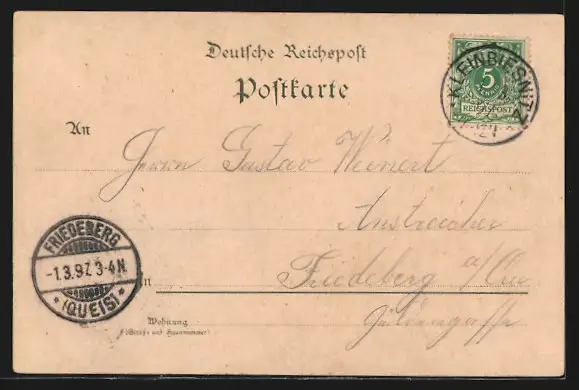 Deutsche Reichspost
Postkarte
KLEINBIESNITZ
5
PFENNIG
REICHSPOST
An
Herrn Gustav Weinert
Friedeberg a/Qu
FRIEDEBERG
-1.3.97. 3-4N
* (QUEIS) *
in
Wohnung
(Straße und Hausnummer)